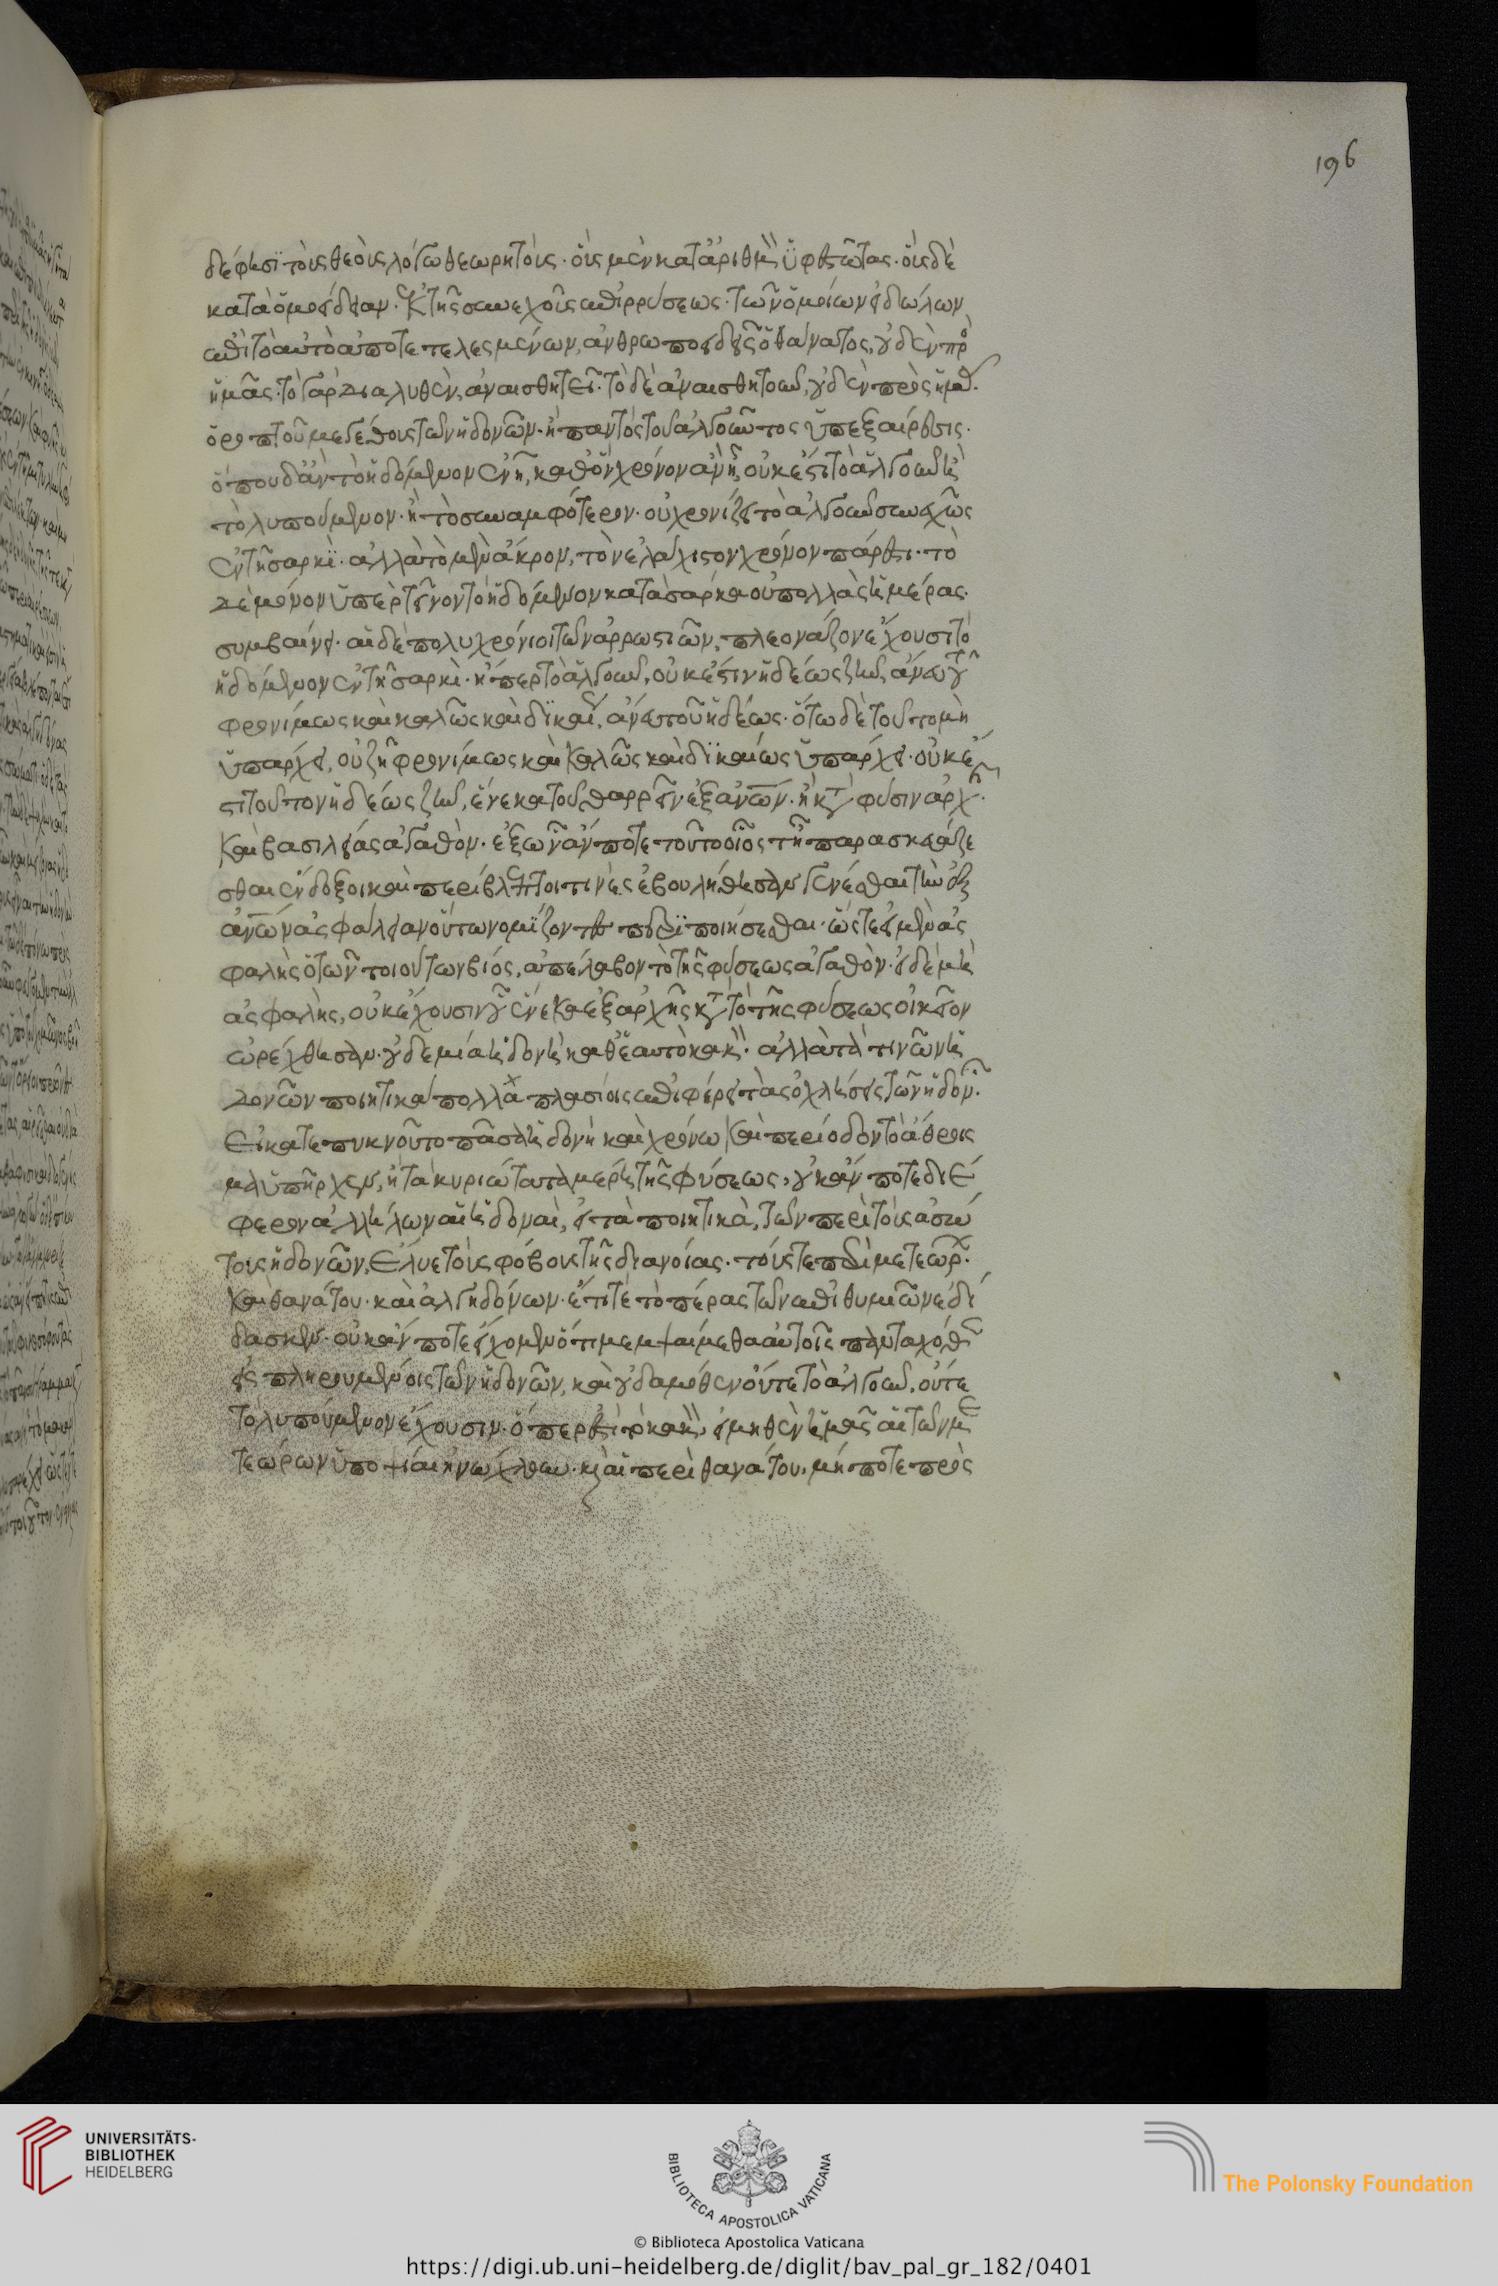 196
δέ φησὶ τοὺς θεοὺς λόγω θεωρητοὺς· οὓς μὲν κατἀριθμ ὑφεστῶτας· οὓς δὲ
κατὰ ὁμοείδειαν· ἐκ τῆς συνεχοῦς ἐπιρρύσεως· τῶν ὁμοίων εἰδώλων
ἐπὶ τὸ αὐτὸ ἀποτετελεσμένων, ἀνθρωποειδεῖς ὁ θάνατος, οὐδὲν πρὸ
ἡμᾶς· τὸ γὰρ διαλυθὲν, ἀναισθητεῖ· τὸ δὲ ἀναισθητοῦν, οὐδὲν πρὸς ἡμᾶς.
ὅρος τοῦ μεγέθους τῶν ἡδονῶν· ἡ παντὸς τοῦ ἀλγοῦντος ὑπεξαίρεσις.
ὅπου δἂν τὸ ἡδόμενον ἐνῆ, καθ ὃν χρόνον ἂν ἦ, οὐκ ἔστι τὸ ἀλγοῦν ἢ
τὸ λυπούμενον· ἢ τὸ συναμφότερον· οὐ χρονίζει τὸ ἀλγοῦν συνεχῶς
ἐν τῆ σαρκὶ· ἀλλὰ τὸ μὲν ἄκρον, τὸν ἐλάχιστον χρόνον πάρεστι· τὸ
δὲ μόνον ὑπερτεῖνον τὸ ἡδόμενον κατὰ σάρκα οὐ πολλὰς ἡμέρας.
συμβαίνει· αἱ δὲ πολυχρόνιοι τῶν ἀρρωστιῶν, πλεονάζον ἔχουσι τὸ
ἡδόμενον ἐν τῆ σαρκὶ· ἤπερ τὸ ἀλγοῦν, οὐκ ἔστιν ἡδέως ζῆν, ἄνευ τοῦ
φρονίμως καὶ καλῶς καὶ δικαί, ἄνευ τοῦ ἡδέως· ὅτω δὲ τοῦτο μὴ
ὑπάρχει, οὐ ζῆ φρονίμως καὶ καλῶς καὶ δικαίως ὑπάρχει· οὐκ ἔ
στι τοῦτον ἡδέως ζῆν, ἕνεκα τοῦ θαρρεῖν ἐξ ἀνῶν· ἦ κατὰ φύσιν ἀρχῆ.
καὶ βασιλείας ἀγαθὸν· ἐξ ὧν ἄν ποτε τοῦτο οἷός τῆ παρασκευάζε
σθαι ἔνδοξοι καὶ περίβλεπτοί τινὲς ἐβουλήθησαν γενέσθαι τὴν ἐξ
ἀνῶν ἀσφάλειαν οὕτω νομίζοντες περὶ ποιήσεσθαι· ὥστε εἰ μὲν ἀσ
φαλὴς ὁ τῶν τοιούτων βιός, ἀπέλαβον τὸ τῆς φύσεως ἀγαθὸν· εἰ δὲ μὴ
ἀσφαλὴς, οὐκ ἔχουσιν οὗ ἕνεκα ἐξ ἀρχῆς κατὰ τὸ τῆς φύσεως οἰκεῖον
ὠρέχθησαν· οὐδεμία ἡδονὴ καθ ἑαυτὸ κακ· ἀλλὰ τά τινῶν ἡ
δονῶν ποιητικὰ πολλαπλασίους ἐπιφέρει τὰς ὀχλήσεις τῶν ἡδον.
Εἰ κατεπυκνοῦτο πᾶσα ἡδονὴ καὶ χρόνω καὶ περίοδον τὸ ἄθροισ
μα ὑπῆρχεν, ἢ τὰ κυριώτατα μέρη τῆς φύσεως, οὐκ ἄν ποτε διέ
φερον ἀλλήλων αἱ ἡδοναὶ, εἰ τὰ ποιητικὰ, τῶν περὶ τοὺς ἀσώ
τους ἡδονῶν, ἔλυε τοὺς φόβους τῆς διανοίας· τούς τε περὶ μετεώρ.
καὶ θανάτου· καὶ ἀλγηδόνων· ἔτι τέ τὸ πέρας τῶν ἐπιθυμιῶν ἐδί
δασκεν· οὐκ ἄν ποτε εἴχομεν ὅ τι μεμψαίμεθα αὐτοῖς πανταχόθεν
εἰσπληρουμένοις τῶν ἡδονῶν, καὶ οὐδαμόθεν οὔτε τὸ ἀλγοῦν, οὔτε
τὸ λυπούμενον ἔχουσιν· ὅπερ ἐστὶ τὸ κακὸν, εἰ μηθὲν ἡμᾶς αἱ τῶν με
τεώρων ὑποψίαι ἠνώχλουν· καὶ αἱ περὶ θανάτου, μήποτε πρὸς
UNIVERSITÄTS-
BIBLIOTHEK
HEIDELBERG
BIBLIOTECA APOSTOLICA VATICANA
The Polonsky Foundation
© Biblioteca Apostolica Vaticana
https://digi.ub.uni-heidelberg.de/diglit/bav_pal_gr_182/0401